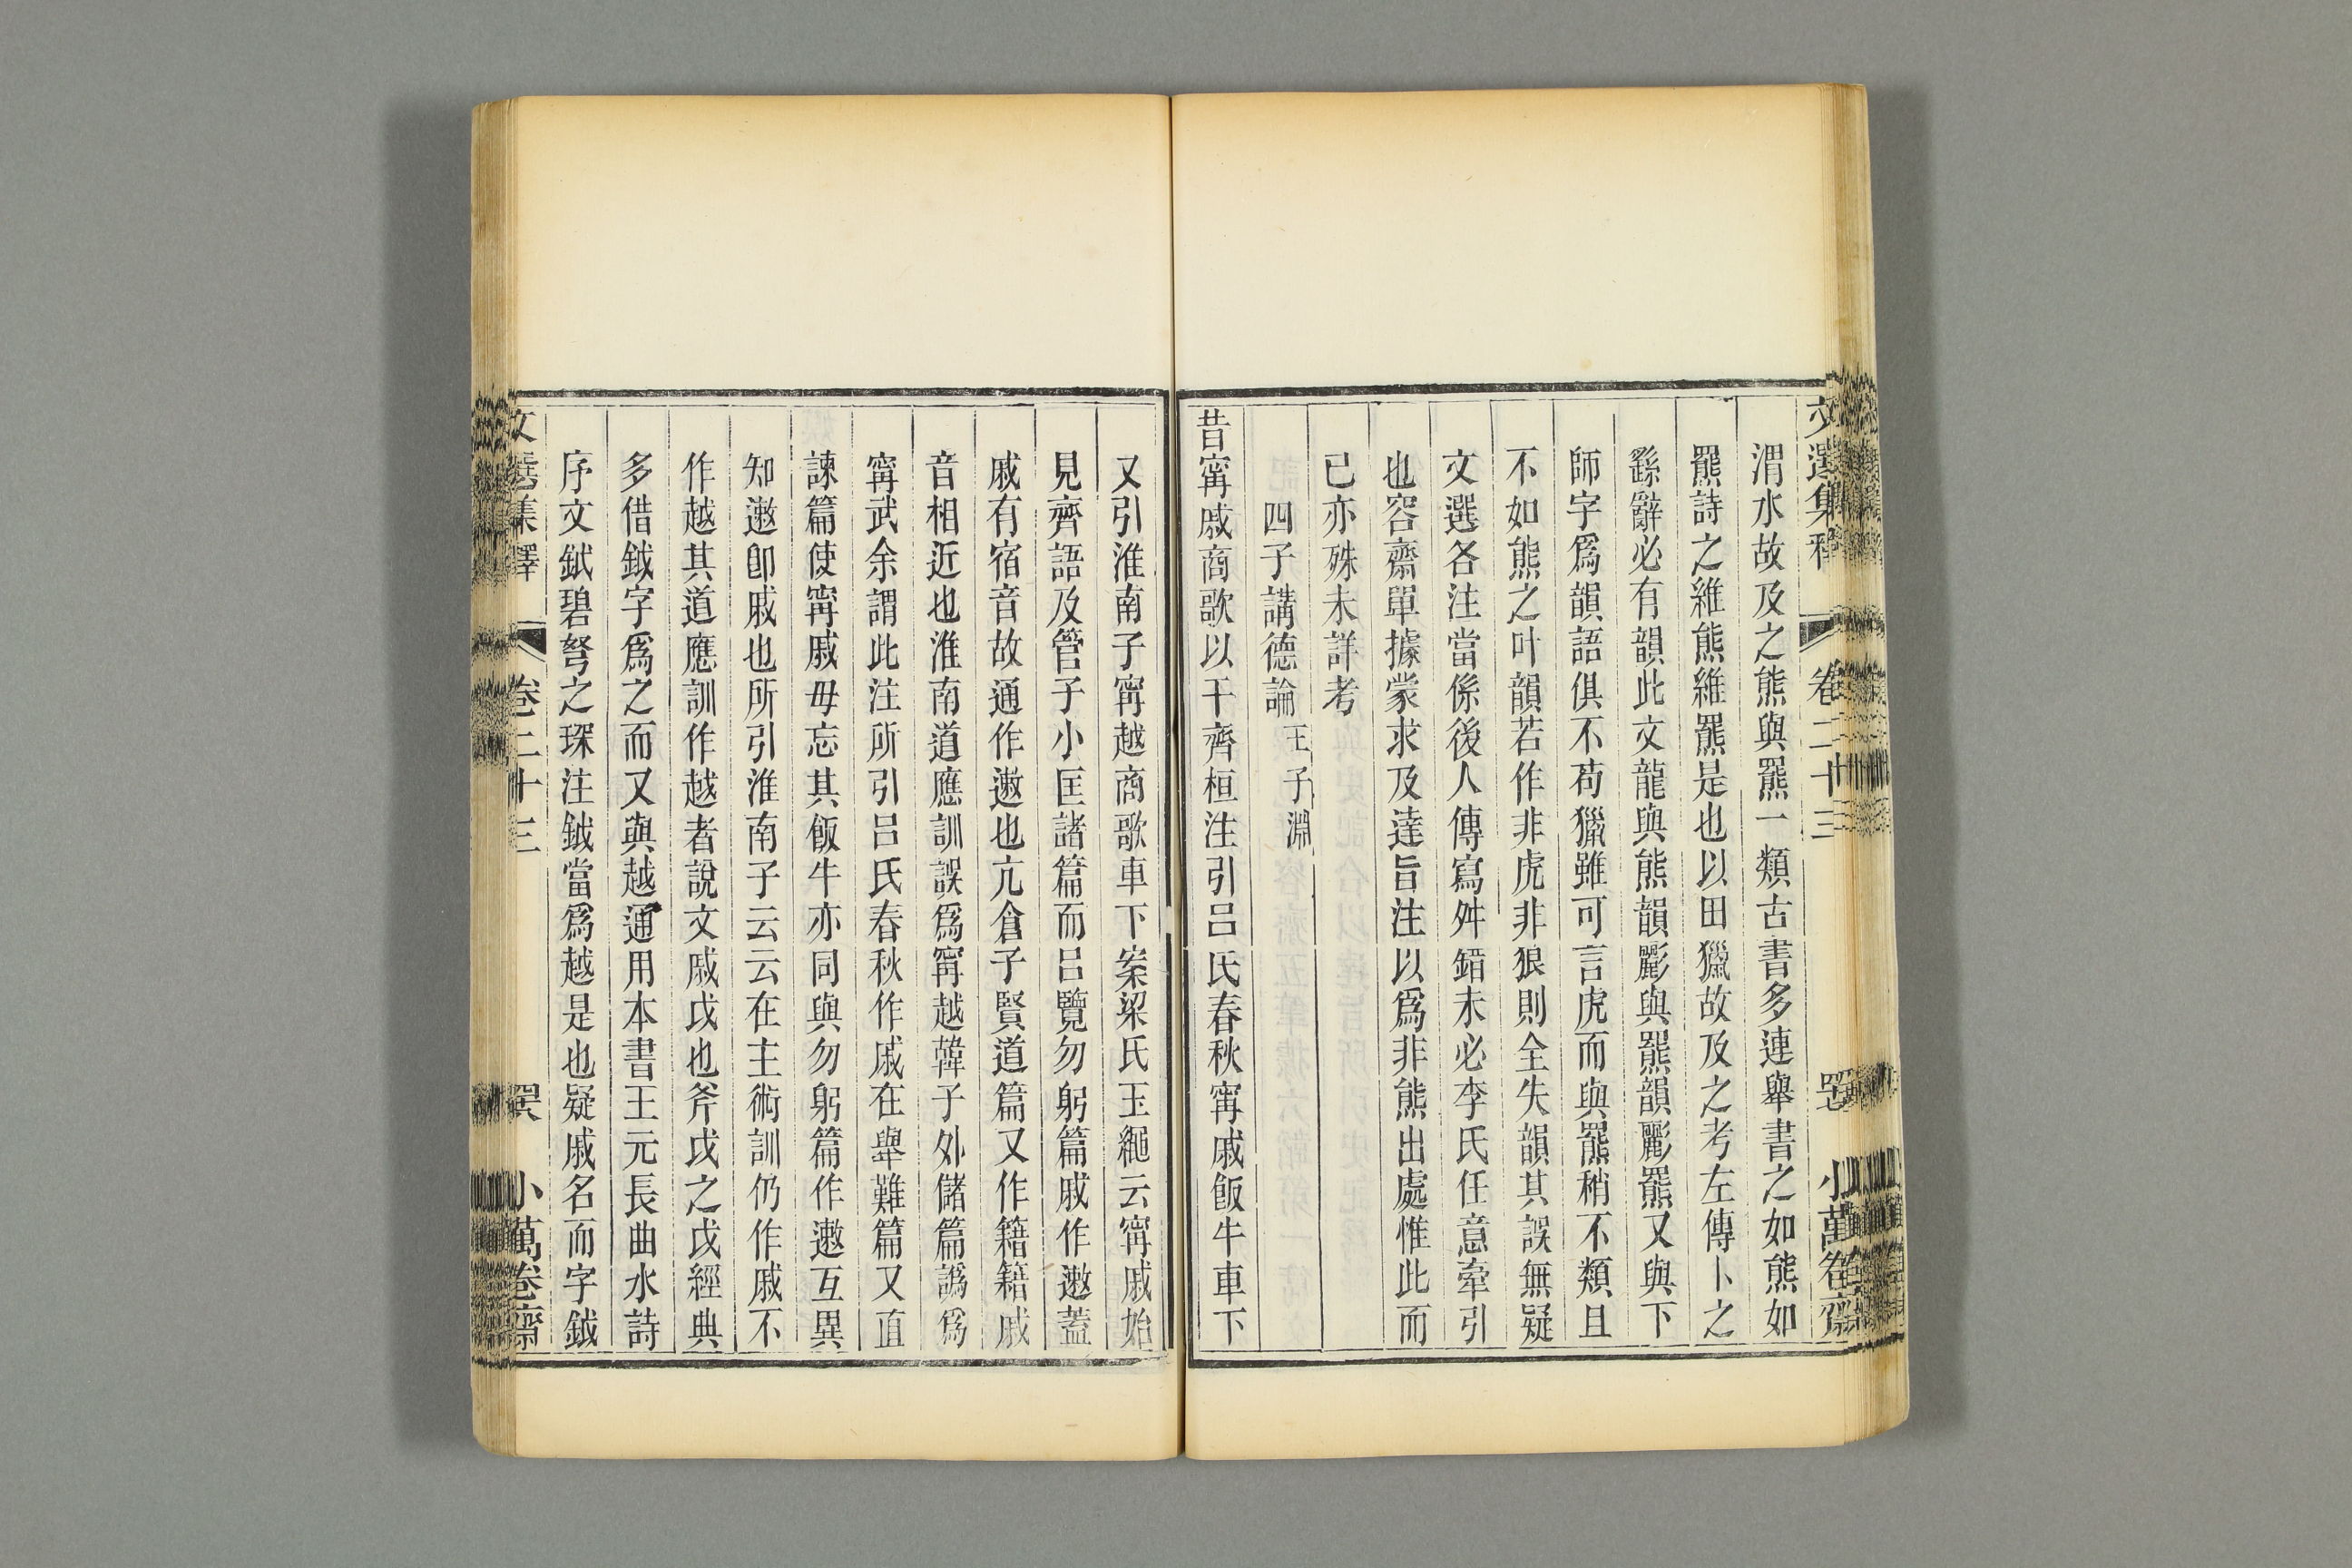 文選集釋 卷二十三 小萬卷齋
渭水故及之熊與羆一類古書多連舉書之如熊如
羆詩之維熊維羆是也以田獵故及之考左傳卜之
繇辭必有韻此文龍與熊韻彲與羆韻彲羆又與下
師字爲韻語俱不苟獵雖可言虎而與羆稍不類且
不如熊之叶韻若作非虎非狼則全失韻其誤無疑
文選各注當係後人傳寫舛錯未必李氏任意牽引
也容齋單據蒙求及達旨注以爲非熊出處惟此而
已亦殊未詳考
四子講德論 王子淵
昔甯戚商歌以干齊桓注引呂氏春秋甯戚飯牛車下
又引淮南子甯越商歌車下案梁氏玉繩云甯戚始
見齊語及管子小匡諸篇而呂覽勿躬篇戚作遬蓋
戚有宿音故通作遬也亢倉子賢道篇又作籍籍戚
音相近也淮南道應訓誤爲甯越韓子外儲篇譌爲
甯武余謂此注所引呂氏春秋作戚在舉難篇又直
諫篇使甯戚毋忘其飯牛亦同與勿躬篇作遬互異
知遬卽戚也所引淮南子云云在主術訓仍作戚不
作越其道應訓作越者說文戚戉也斧戉之戉經典
多借鉞字爲之而又與越通用本書王元長曲水詩
序文鉞碧砮之琛注鉞當爲越是也疑戚名而字鉞
文選集釋 卷二十三 小萬卷齋